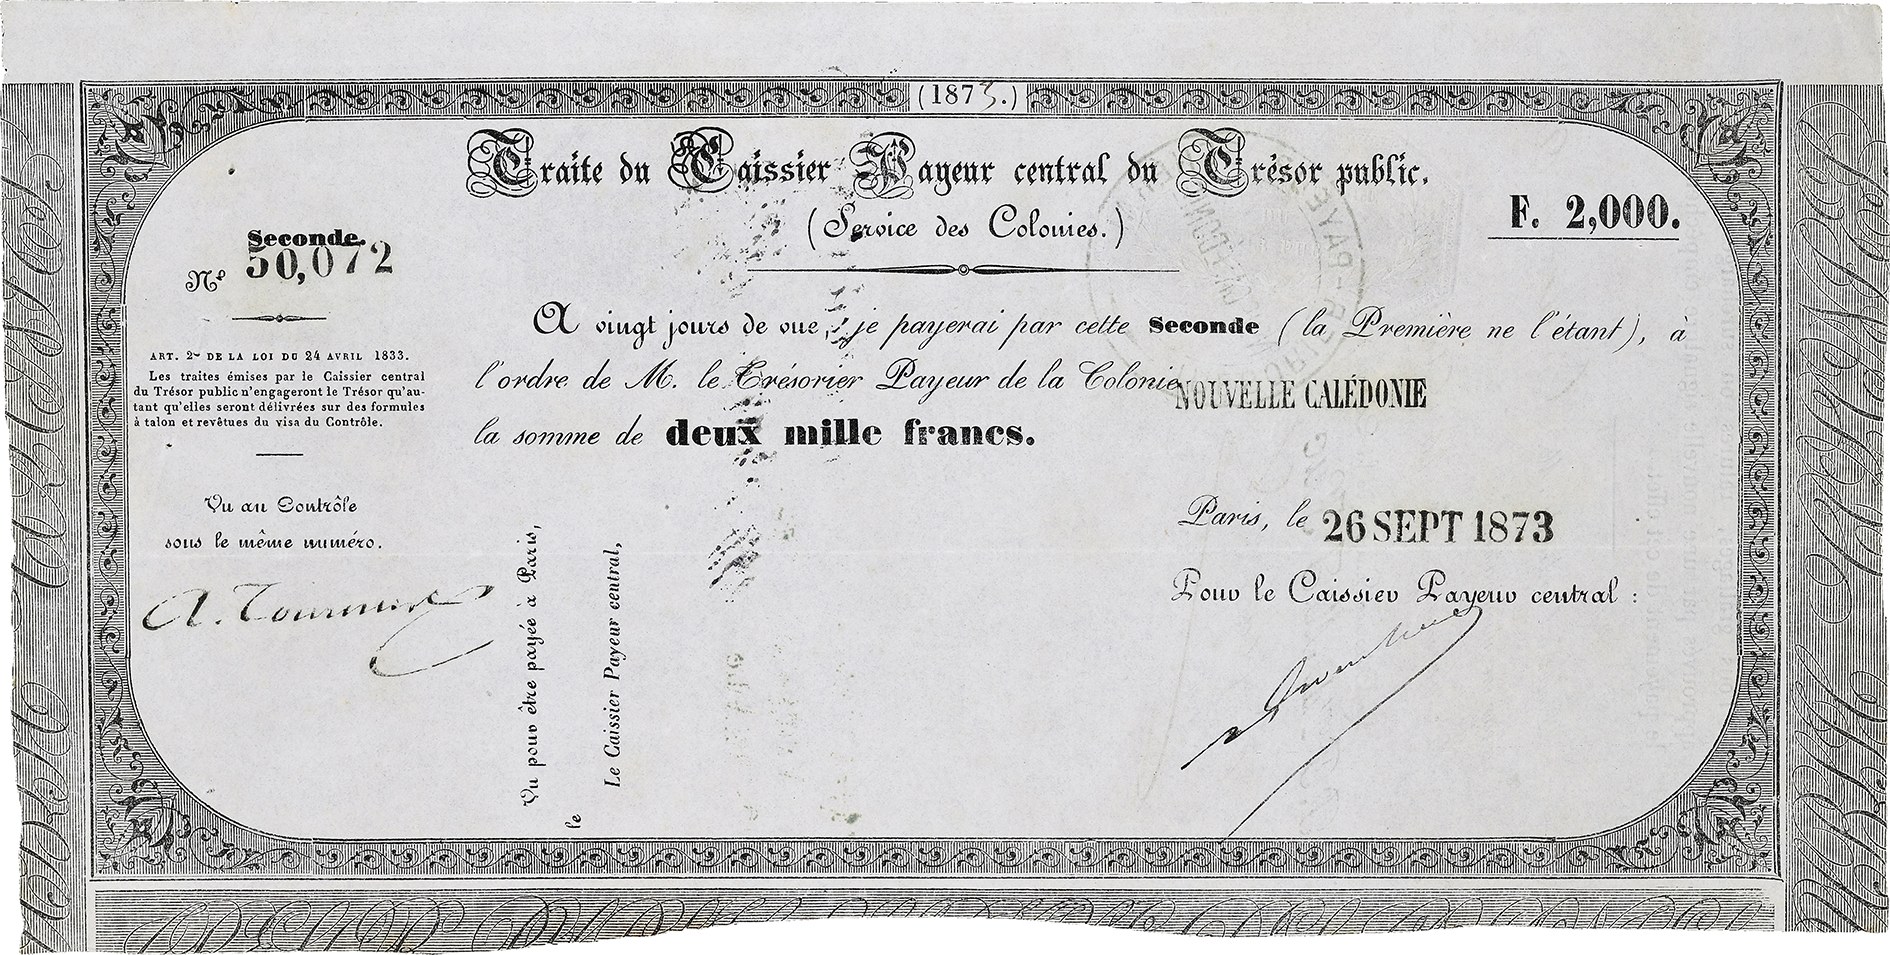 (1873.)
Traite du Caissier Payeur central du Trésor public.
(Service des Colonies.)
F. 2,000.
Seconde.
N° 50,072
ART. 2 DE LA LOI DU 24 AVRIL 1833.
Les traites émises par le Caissier central
du Trésor public n'engageront le Trésor qu'au-
tant qu'elles seront délivrées sur des formules
à talon et revêtues du visa du Contrôle.
Vu au Contrôle
sous le même numéro.
A vingt jours de vue, je payerai par cette Seconde (la Première ne l'étant), à
l'ordre de M. le Trésorier Payeur de la Colonie NOUVELLE CALÉDONIE
la somme de deux mille francs.
Vu pour être payée à Paris,
le
Le Caissier Payeur central,
Paris, le 26 SEPT 1873
Pour le Caissier Payeur central :